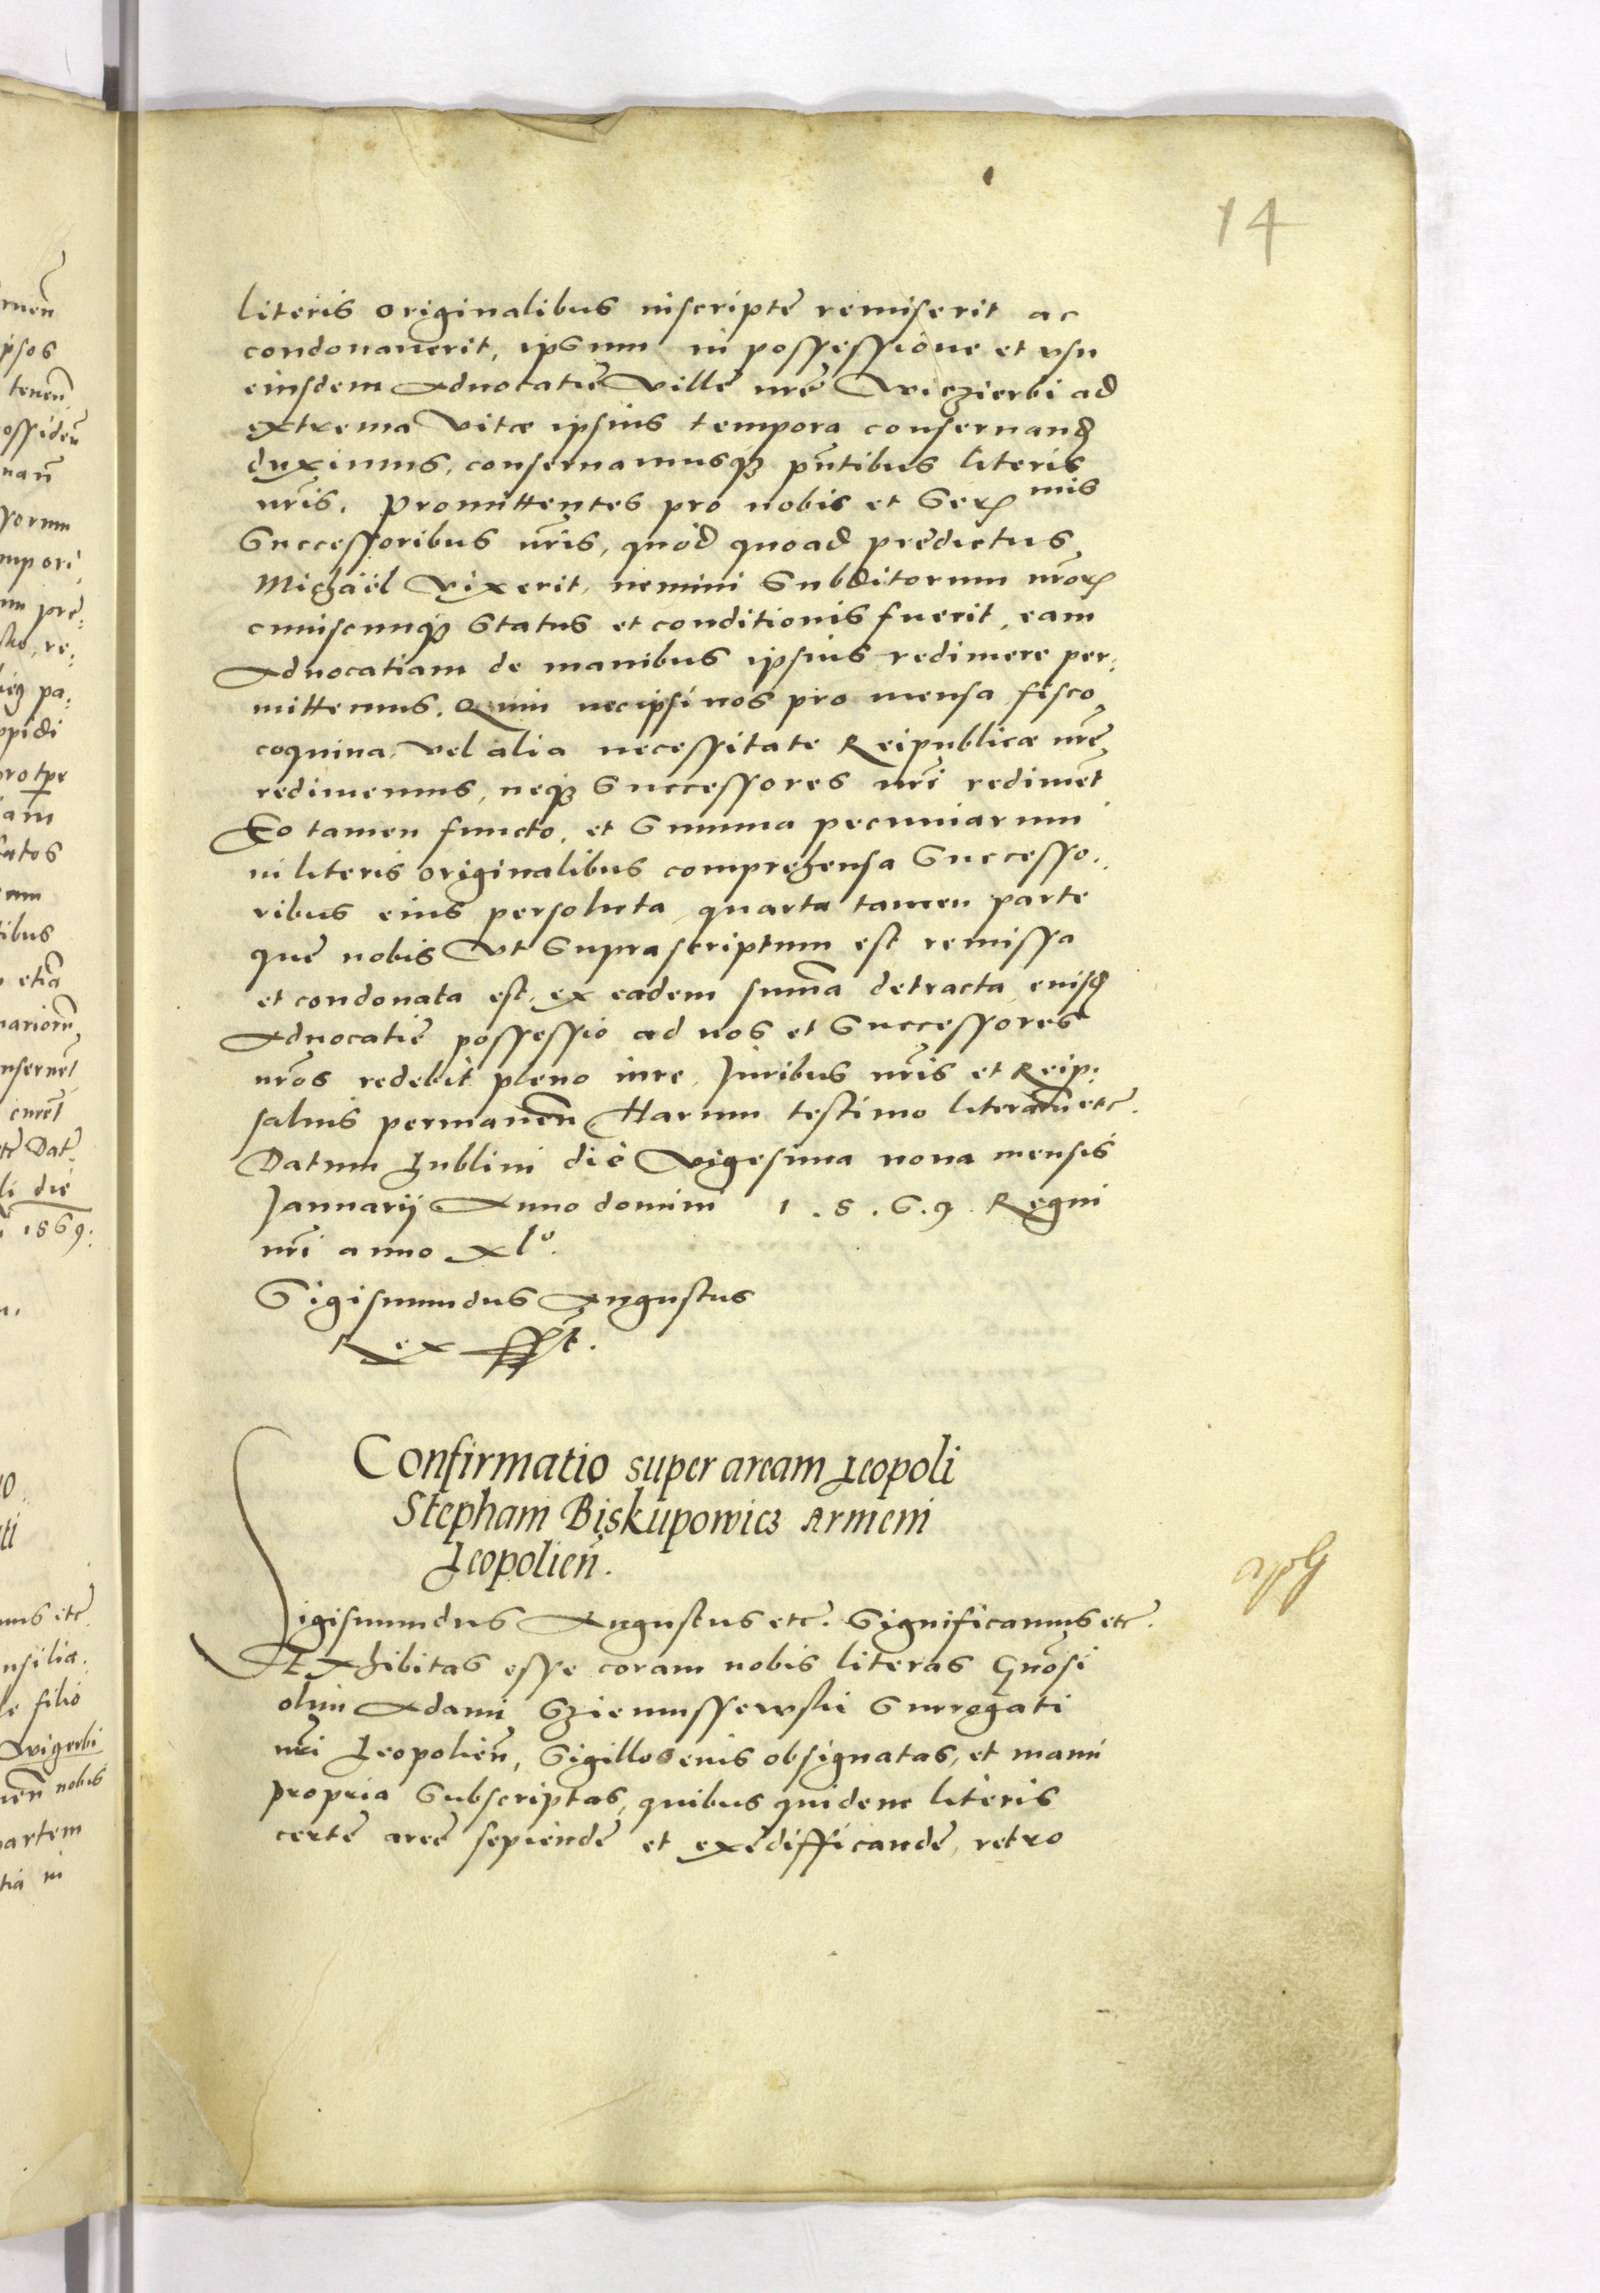 14
literis originalibus inscriptę remiserit ac
condonauerit, ipsum in possessione et vsu
eiusdem Aduocatię Villę nrę Wierzierbi ad
extrema Vitæ ipsius tempora conseruand
duximus, conseruamusq pntibus literis
nris. Promittentes pro nobis et Ser mis
Successoribus nris, quod quoad prędictus
Michaël Vixerit, nemini Subditorum nror
cuiuscunq Status et conditionis fuerit, eam
Aduocatiam de manibus ipsius redimere per:
mittemus. Quin nec ipsi nos pro mensa, fisco,
coquina, vel alia necessitate Reipublicæ nrę
redimemus, neq Successores nri redimet
Eo tamen functo, et Summa pecuniarum
in literis originalibus comprehensa Successo:
ribus eius persoluta, quarta tamen parte
quę nobis Vt Suprascriptum est remissa
et condonata est, ex eadem suma detracta, euisd
Aduocatię possessio ad nos et Successores
nros redebit pleno iure, Iuribus nris et Reip:
saluis permanen Harum testimo literarum etc.
Datum Lublini die Vigesima nona mensis
Januarij Anno domini 1.5.6.9. Regni
nri anno xl°.
Sigismundus Augustus
Rex sst.
Confirmatio super aream Leopoli
Stephani Biskupowicz Armeni
Leopolien.
Sigismundus Augustus etc. Significamus etc.
Exhibitas esse coram nobis literas Gnosi
olim Adami Sziemussewski Surrogati
nri Leopolien, Sigillo eius obsignatas, et manu
propria Subscriptas, quibus quidem literis
certę areę sepiendę et exędifficandę, retro